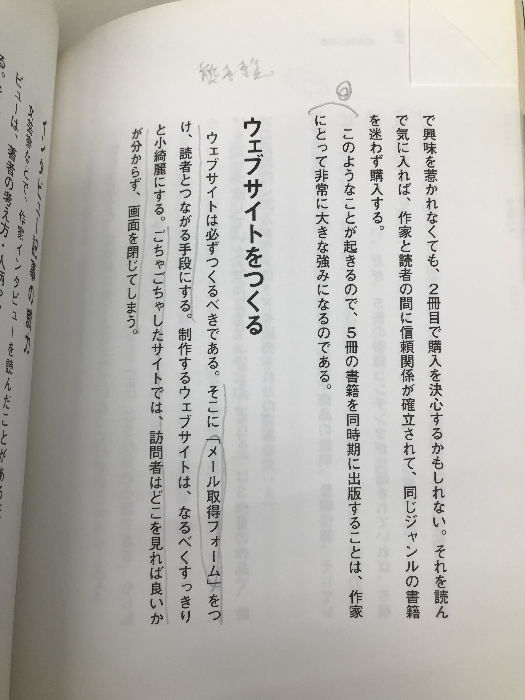 で興味を惹かれなくても、2冊目で購入を決心するかもしれない。それを読ん
で気に入れば、作家と読者の間に信頼関係が確立されて、同じジャンルの書籍
を迷わず購入する。
このようなことが起きるので、5冊の書籍を同時期に出版することは、作家
にとって非常に大きな強みになるのである。
ウェブサイトをつくる
ウェブサイトは必ずつくるべきである。そこに「メール取得フォーム」をつ
け、読者とつながる手段にする。制作するウェブサイトは、なるべくすっきり
と小綺麗にする。ごちゃごちゃしたサイトでは、訪問者はどこを見れば良いか
が分からず、画面を閉じてしまう。
インタビュー記事の魅力
作家インタビューを読んだことがある
ビューは、著者の考え方・人柄